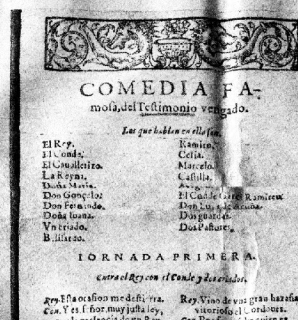 COMEDIA FA-
mosa, del Testimonio vengado.
Los que hablan en ella son.
El Rey.
El Conde.
El Cauallerizo.
La Reyna.
Doña Maria.
Don Gonçalo.
Don Fernando.
Doña Iuana.
Vn criado.
Belisardo.
Ramiro.
Celia.
Marcelo.
Castilla.
El Conde
Ramirez
Don
Dos guardas.
Dos Pastores.
IORNADA PRIMERA.
Entra el Rey con el Conde y dos criados.
Rey. Esta ocasion me desti
Con. Y es, señor, muy justa ley,
Rey. Vino de vna gran hazaña
vitorioso el Cordoues.